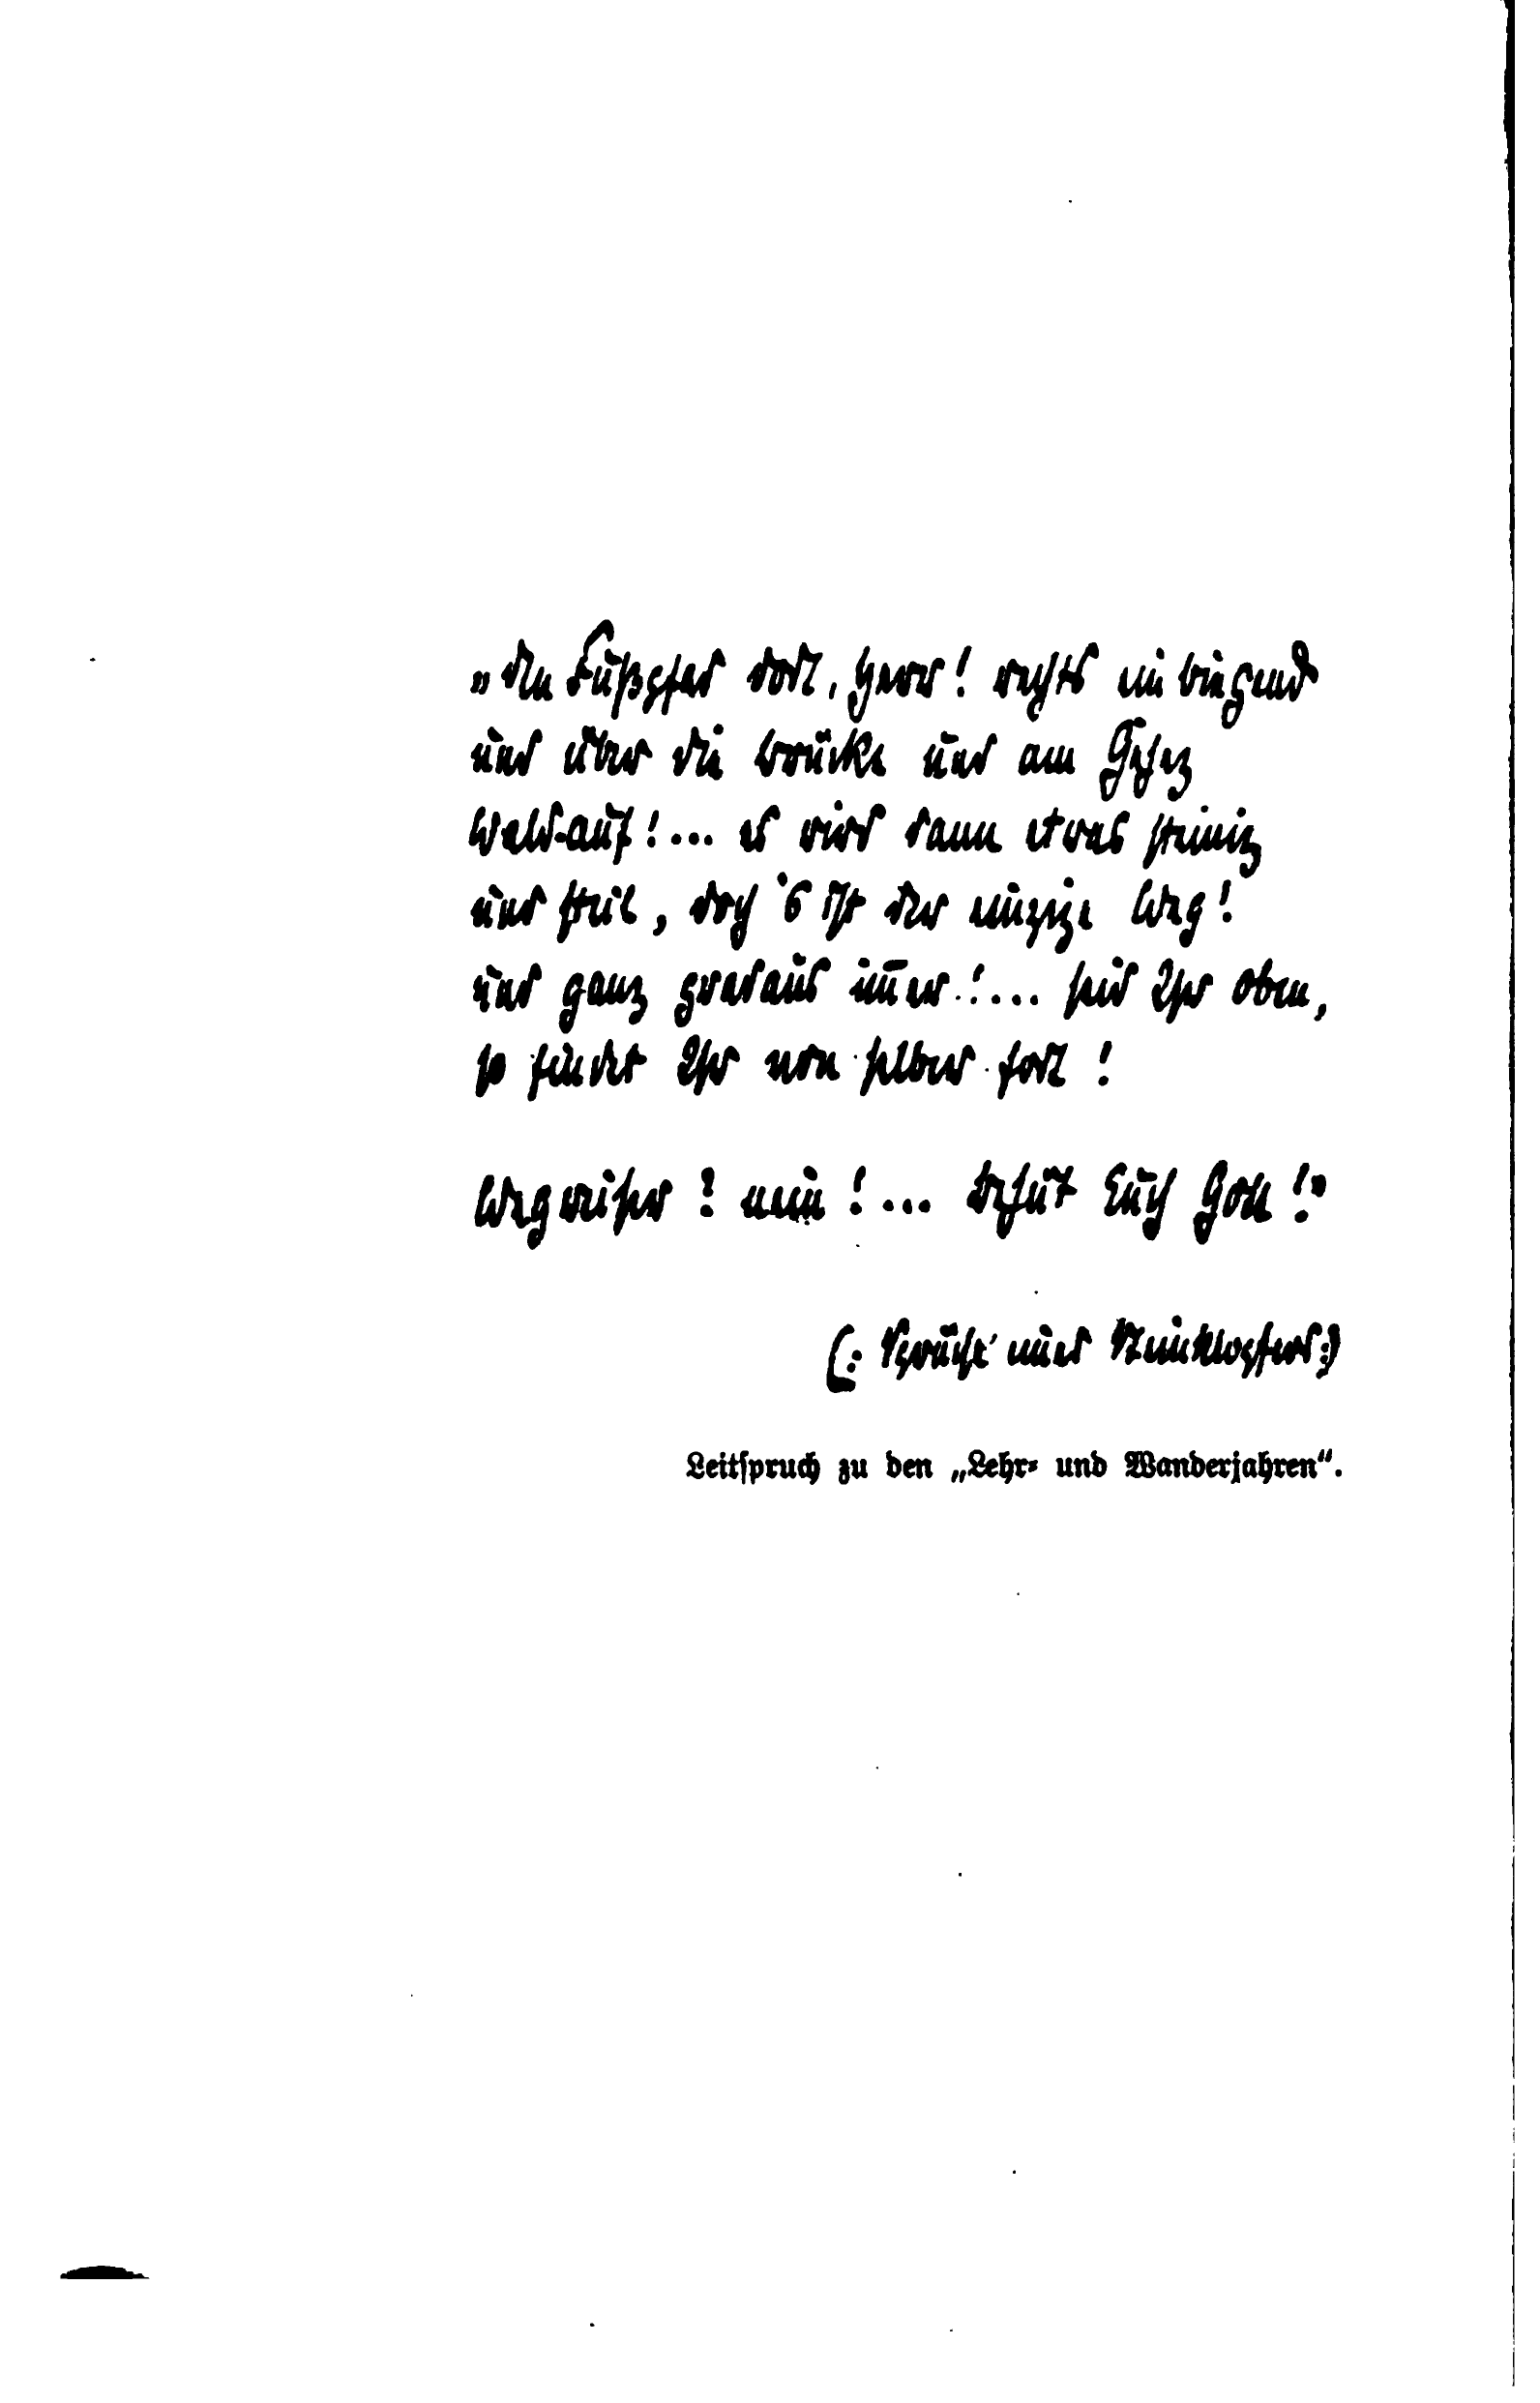 „den Fußpfad dort, Herr! rechts einbiegend
und über die brücke und am Gehez
Wald-auf!... es wird dann etwas steinig
und steil, doch 's ist der einzige Weg!
und ganz gradaus im̄er!... seid Ihr oben,
so findet Ihr von selber fort!
Wegweiser? nein!... behüt Euch Gott!"
(: Sprüche eines Steinklopfers:)
Leitſpruch zu den „Lehr- und Wanderjahren“.